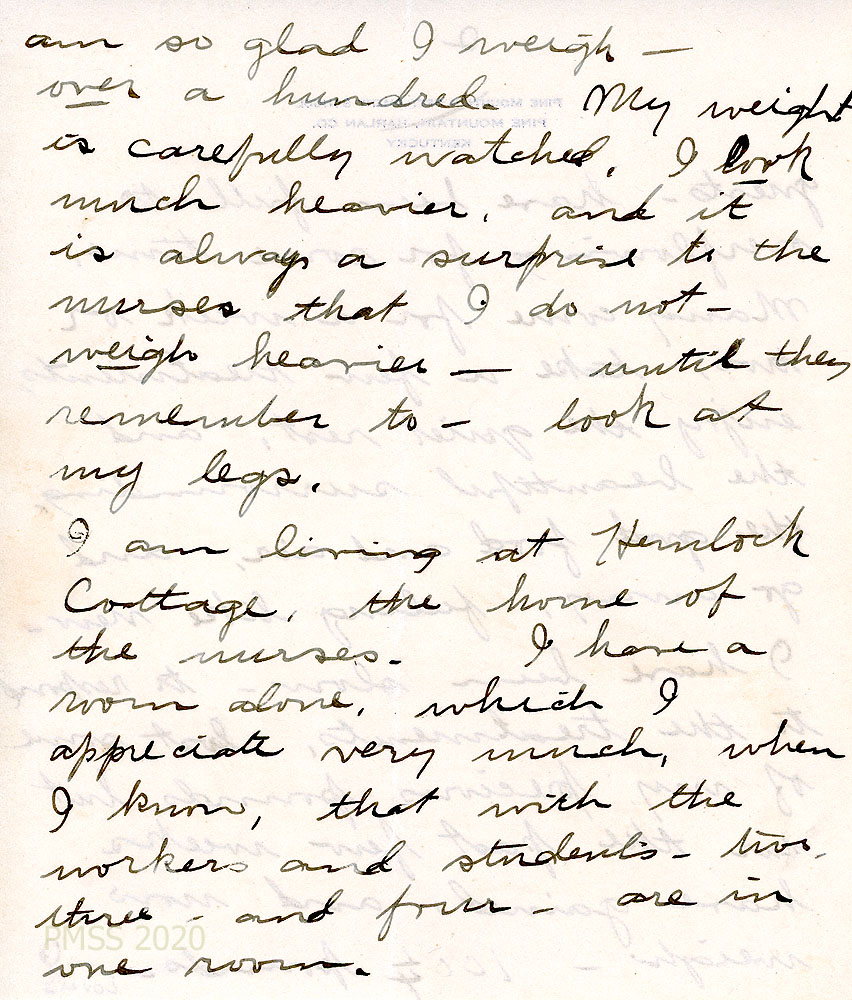 am so glad I weigh —
over a hundred. My weight
is carefully watched. I look
much heavier, and it
is always a surprise to the
nurses that I do not -
weigh heavier — until they
remember to - look at
my legs.
I am living at Hemlock
Cottage, the home of
the nurses. I have a
room alone, which I
appreciate very much, when
I know, that with the
workers and students - two,
three - and four - are in
one room.
PMSS 2020